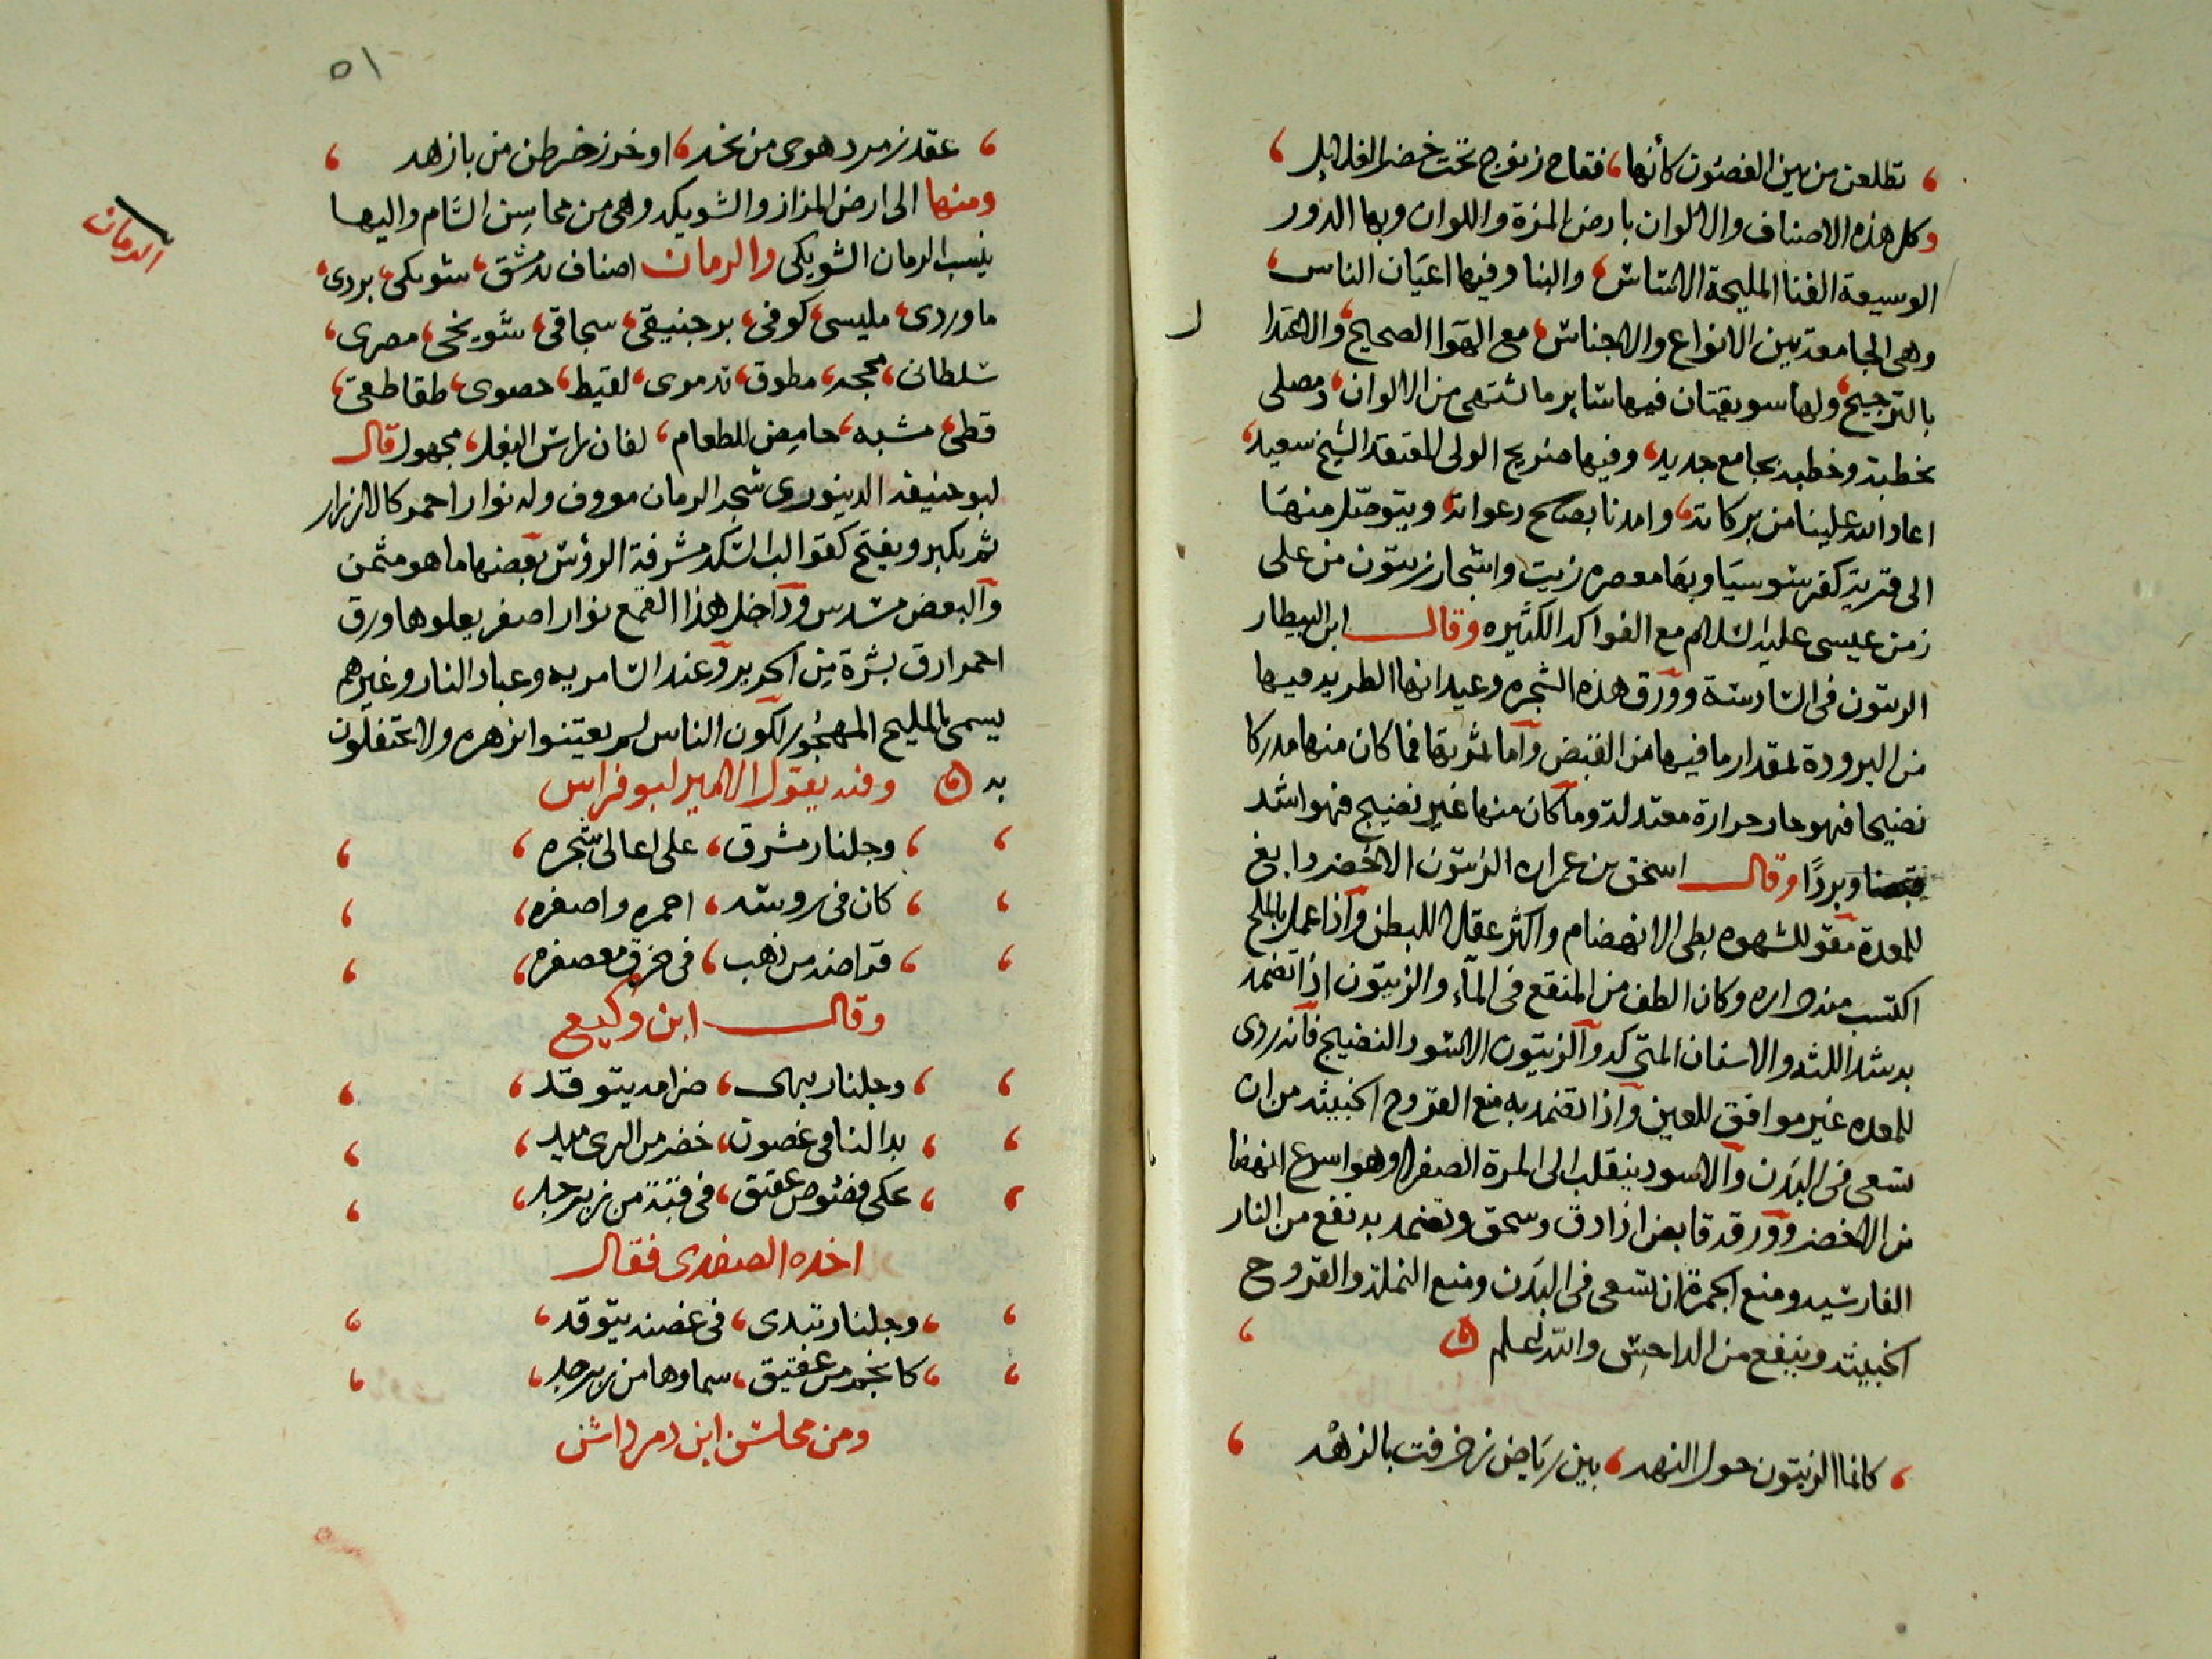 تطلعن من بين الغصون كأنها، فقاح زنوج تحت خضر الغلايل
وكل هذه الاصناف والالوان بارض المزة واللوان وبها الدور
الوسيعة الفنا المليحة الاساس والبنا وفيها اعيان الناس
وهى الجامعة بين الانواع والاجناس مع الهوا الصحيح، والاعتدا ل
بالترجيح ولها سويقتان فيها سايرما تشتهى من الالوان ومصلى
بخطبة وخطبة بجامع جديد، وفيها ضريح الولى المعتقد الشيخ سعيد
اعاد الله علينا من بركاته، وامدنا بصالح دعواته ويتوصل منها
الى قرية كفر سوسيا وبها معصره زيت واشجار زيتون من على
زمن عيسى عليه السلام مع الفواكه الكثيره وقال ابن البيطار
الزيتون فى السادسة وورق هذه الشجره وعيدانها الطريه فيها
من البرودة بمقدار ما فيها من القبض واما ثمرتها فما كان منها مدركا
نضيجا فهو حار حرارة معتدلة وما كان منها غير نضيج فهو اشد
قبضا وبردًا وقال اسحق بن عمران الزيتون الاخضر دابغ
للمعدة مقو للشهوه بطى الانهضام واكثر عقلا للبطن واذا عمل بالملح
اكتسب منه حراره وكان الطف من المنقع فى الماء والزيتون اذا تضمد
به شد اللثه والاسنان المتحركه والزيتون الاسود النضيج فانه ردى
للمعده غير موافق للعين واذا تضمد به منع القروح الخبيثه من ان
تسعى فى البدن والاسود ينقلب الى المرة الصفرا وهو اسرع انهضا
من الاخضر وورقه قابض اذا دق وسحق وتضمد به نفع من النار
الفارسيه ومنع الجمرة ان تسعى فى البدن ومنع النملة والقروح
الخبيثه وينفع من الداحس والله اعلم
كانما الزيتون حول النهر، بين رياض زخرفت بالزهر
٥١
عقد زمرد هوى من نحر، او خرز خرطن من بازهر
ومنها الى ارض المزاز والشويكه وهى من محاسن الشام واليها
ينسب الرمان الشويكى والرمان اصناف بدمشق، شويكى، بردى،
ماوردى، مليسى، كوفى، برجنيقى، سجاقى، شويخى، مصرى،
سلطانى، محجر، مطوق، تدمرى، لقيط، حصوى، طقاطقى،
قطى، مشبه، حامض للطعام، لفان، راس البغل، مجهول قال
ابو حنيفه الدينورى شجر الرمان معروف وله نوار احمر كالازرار
ثم يكبر ويفتح كقوالب السكر مشرفة الرؤس بعضها ما هو مثمن
والبعض مسدس وداخل هذا القمع نوار اصفر يعلوها ورق
احمر ارق بشرة من الحرير وعند السامريه وعباد النار وغيرهم
يسمى بالمليح المهجور لكون الناس لم يعتنوا بزهره ولا يحتفلون
به وفيه يقول الامير ابو فراس
وجلنار مشرق، على اعالى شجره
كان فى روسه، احمره واصفره
قراضة من ذهب، فى خرق معصفره
وقال ابن وكيع
وجلنار بهى، ضرامه يتوقد
بدا لنا فى غصون، خضر من الرى ميد
يحكى فصوص عقيق، فى قبة من زبرجد
اخذه الصفدى فقال
وجلنار تبدى، فى غصنه يتوقد
كانجم من عقيق، سماوها من زبرجد
ومن محاسن ابن دمرداش
الرمان